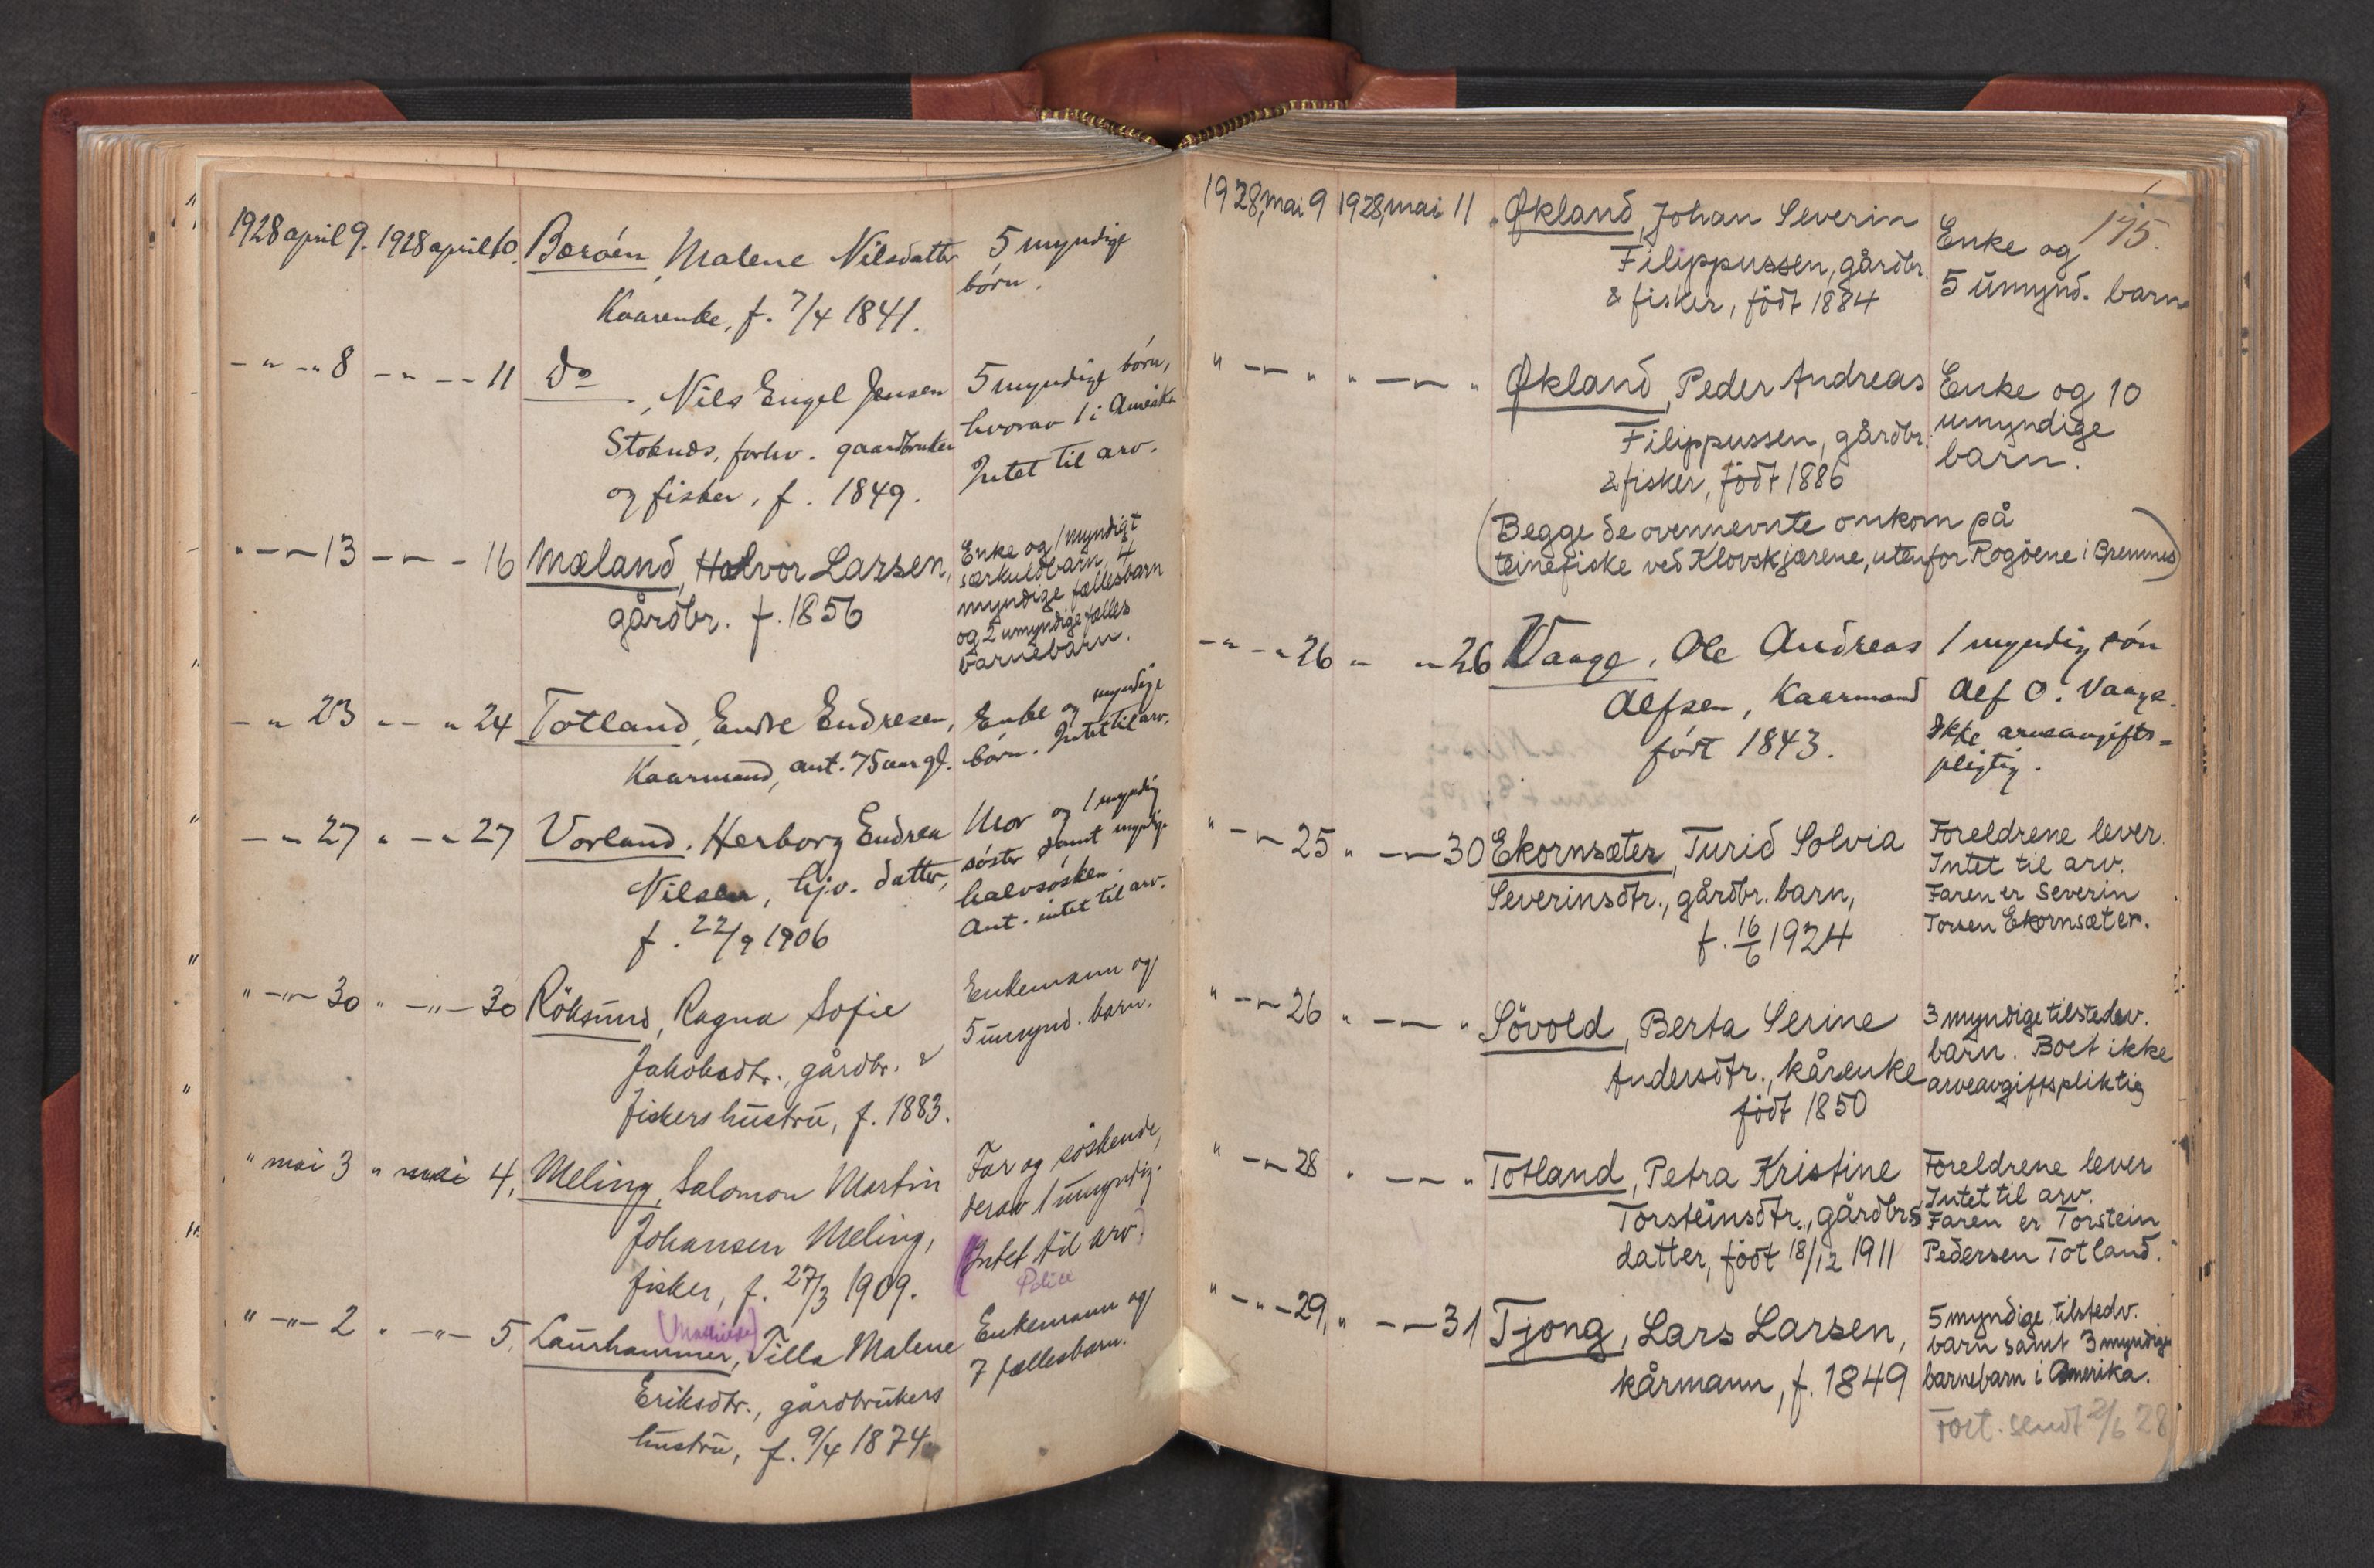 1928 april 9. 1928 april 10. Børøen, Malene Nilsdatter 5 myndige
Kaarenke, f. 7/4 1841. børn.
— " — " 8 — " — — 11 Do, Nils Engel Jensen 5 myndige børn,
hvorav 1 i Amerika
Stoknes, forhv. gaardbruker Intet til arv.
og fisker, f. 1849.
" — — 13 — — — 16 Mæland, Halvor Larsen, Enke og 1 myndigt
gårdbr. f. 1856 særkuldbarn, 4
myndige fællesbarn
og 2 umyndige fælles
barnebarn.
— " 23 " — " 24 Totland, Endre Endresen, Enke og myndige
Kaarmand, ant. 75 aar gl. børn. Intet til arv.
— " 27 " — " 27 Vorland, Herborg Endrea Mor og 1 myndig
Nilsen, hjv. datter, søster samt myndige
f. 22/9 1906 halvsøsken.
Ant. intet til arv.
" — " — 30 " — " — 30 Röksund, Ragna Sofie Enkemann og
Jakobsdtr., gårdbr. & 5 umynd. barn.
fiskers hustru, f. 1883.
" mai 3 " mai 4. Meling, Salomon Martin Far og søskende,
Johansen Meling, derav 1 umyndig.
fisker, f. 27/3 1909. Intet til arv.
" — " — 2 " — " — 5. Laurhammer, Tilla Malene Enkemann og
Eriksdtr., gårdbrukers 7 fællesbarn.
hustru, f. 9/4 1874.
175.
1928, mai 9 1928, mai 11 Økland, Johan Severin Enke og
Filippussen, gårdbr. 5 umynd. barn
& fisker, födt 1884
" — — " " — — " Økland, Peder Andreas Enke og 10
Filippussen, gårdbr. umyndige
& fisker, födt 1886 barn.
(Begge de ovennevnte omkom på
teinefiske ved Klovskjærene, utenfor Rogöene i Bremnes)
— " — " 26 " " 26 Vaage, Ole Andreas 1 myndig søn
Alfsen, Kaarmand Alf O. Vaage.
født 1843. Ikke arveavgifts-
pligtig.
" — — 25 " — — 30 Ekornsæter, Turid Solvia Foreldrene lever.
Severinsdtr., gårdbr. barn, Intet til arv.
f. 16/6 1924 Faren er Severin
Torsen Ekornsæter.
" — — 26 " — — " Sövold, Berta Serine 3 myndige tilstedev.
Andersdtr., kårenke barn. Boet ikke
födt 1850 arveavgiftspliktig
" — — 28 " — — " Totland, Petra Kristine Foreldrene lever
Torsteinsdtr., gårdbrs Intet til arv.
datter, födt 18/12 1911 Faren er Torstein
Pedersen Totland.
" — " — 29, " — — 31 Tjong, Lars Larsen, 5 myndige tilstedv.
kårmann, f. 1849 barn samt 3 myndige
barnebarn i Amerika.
Fort. sendt 2/6 28